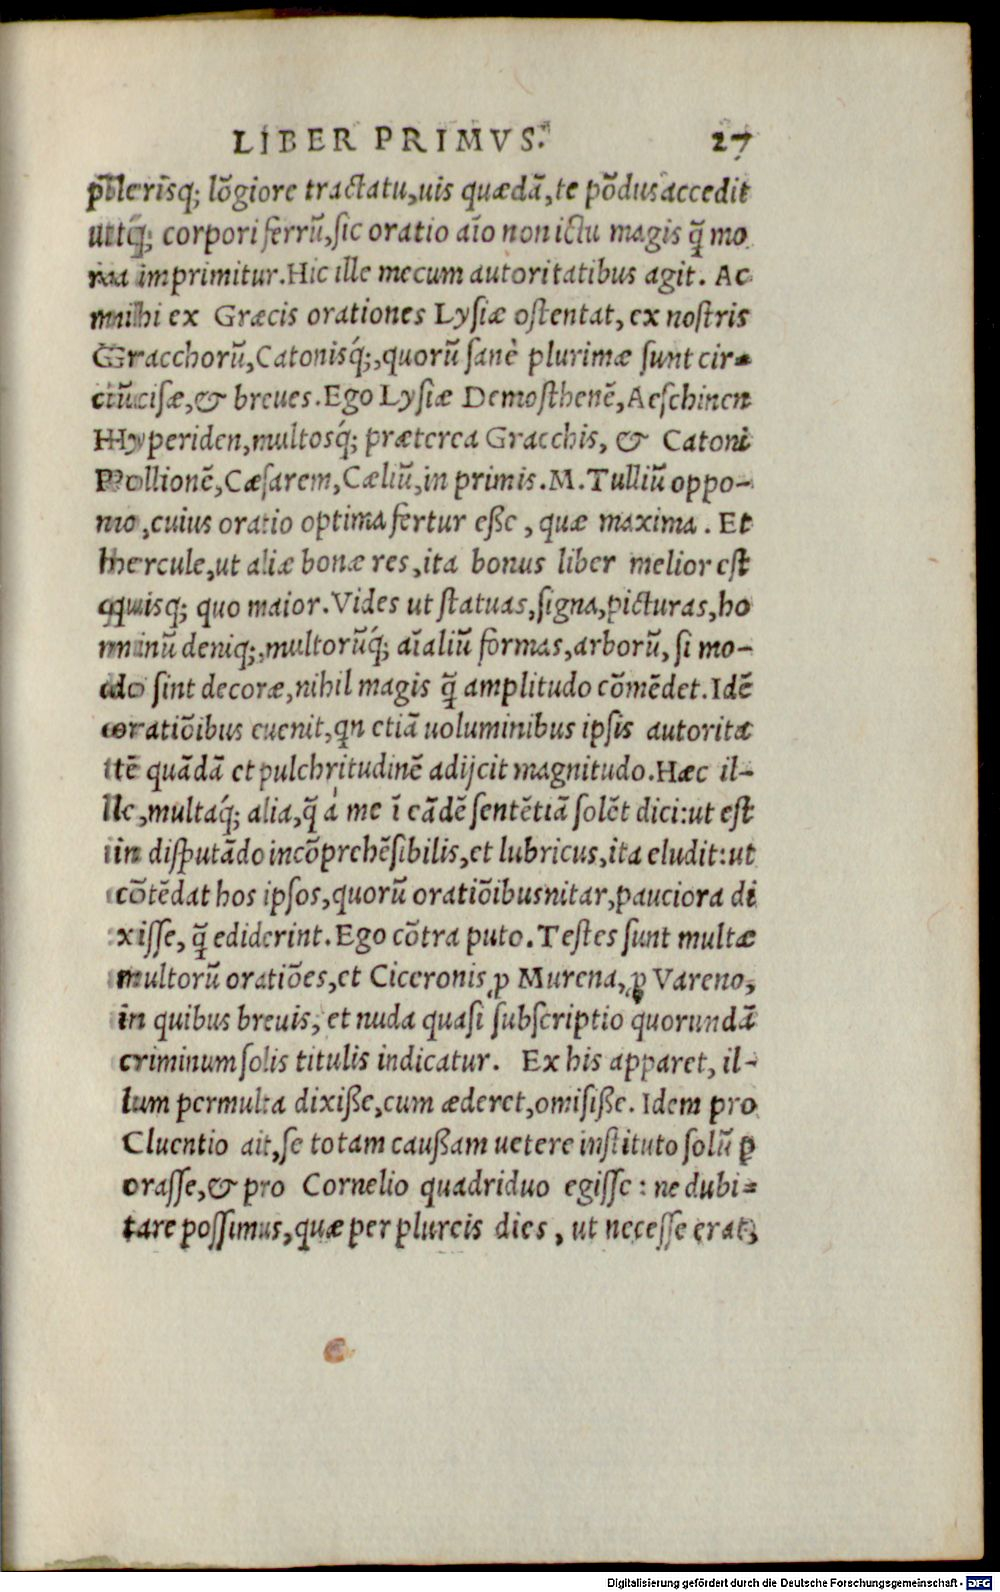 LIBER PRIMVS. 27
plerisq; lõgiore tractatu, uis quædã, te põdus accedit
utq́; corpori ferrũ, sic oratio aĩo non ictu magis q̃ mo
ra imprimitur. Hic ille mecum autoritatibus agit. Ac
mihi ex Græcis orationes Lysiæ ostentat, ex nostris
Gracchorũ, Catonisq́;, quorũ sanè plurimæ sunt cir-
cũcisæ, & breues. Ego Lysiæ Demosthenẽ, Aeschinen
Hyperiden, multosq́; præterea Gracchis, & Catoni
Pollionẽ, Cæsarem, Cæliũ, in primis. M. Tulliũ oppo-
no, cuius oratio optima fertur eße, quæ maxima. Et
hercule, ut aliæ bonæ res, ita bonus liber melior est
quisq; quo maior. Vides ut statuas, signa, picturas, ho
minũ deniq;, multorũq́; aĩaliũ formas, arborũ, si mo-
do sint decoræ, nihil magis q̃ amplitudo cõmẽdet. Idẽ
oratiõibus euenit, qn etiã uoluminibus ipsis autorita
tẽ quãdã et pulchritudinẽ adijcit magnitudo. Hæc il-
le, multaq́; alia, q̃ à me ĩ eãdẽ sentẽtiã solẽt dici: ut est
in disputãdo incõprehẽsibilis, et lubricus, ita eludit: ut
cõtẽdat hos ipsos, quorũ oratiõibus nitar, pauciora di
xisse, q̃ ediderint. Ego cõtra puto. Testes sunt multæ
multorũ oratiões, et Ciceronis ꝓ Murena, ꝓ Vareno,
in quibus breuis, et nuda quasi subscriptio quorundã
criminum solis titulis indicatur. Ex his apparet, il-
lum permulta dixiße, cum æderet, omisiße. Idem pro
Cluentio ait, se totam caußam uetere instituto solũ ꝑ
orasse, & pro Cornelio quadriduo egisse: ne dubi-
tare possimus, quæ per plureis dies, ut necesse erat,
Digitalisierung gefördert durch die Deutsche Forschungsgemeinschaft - DFG